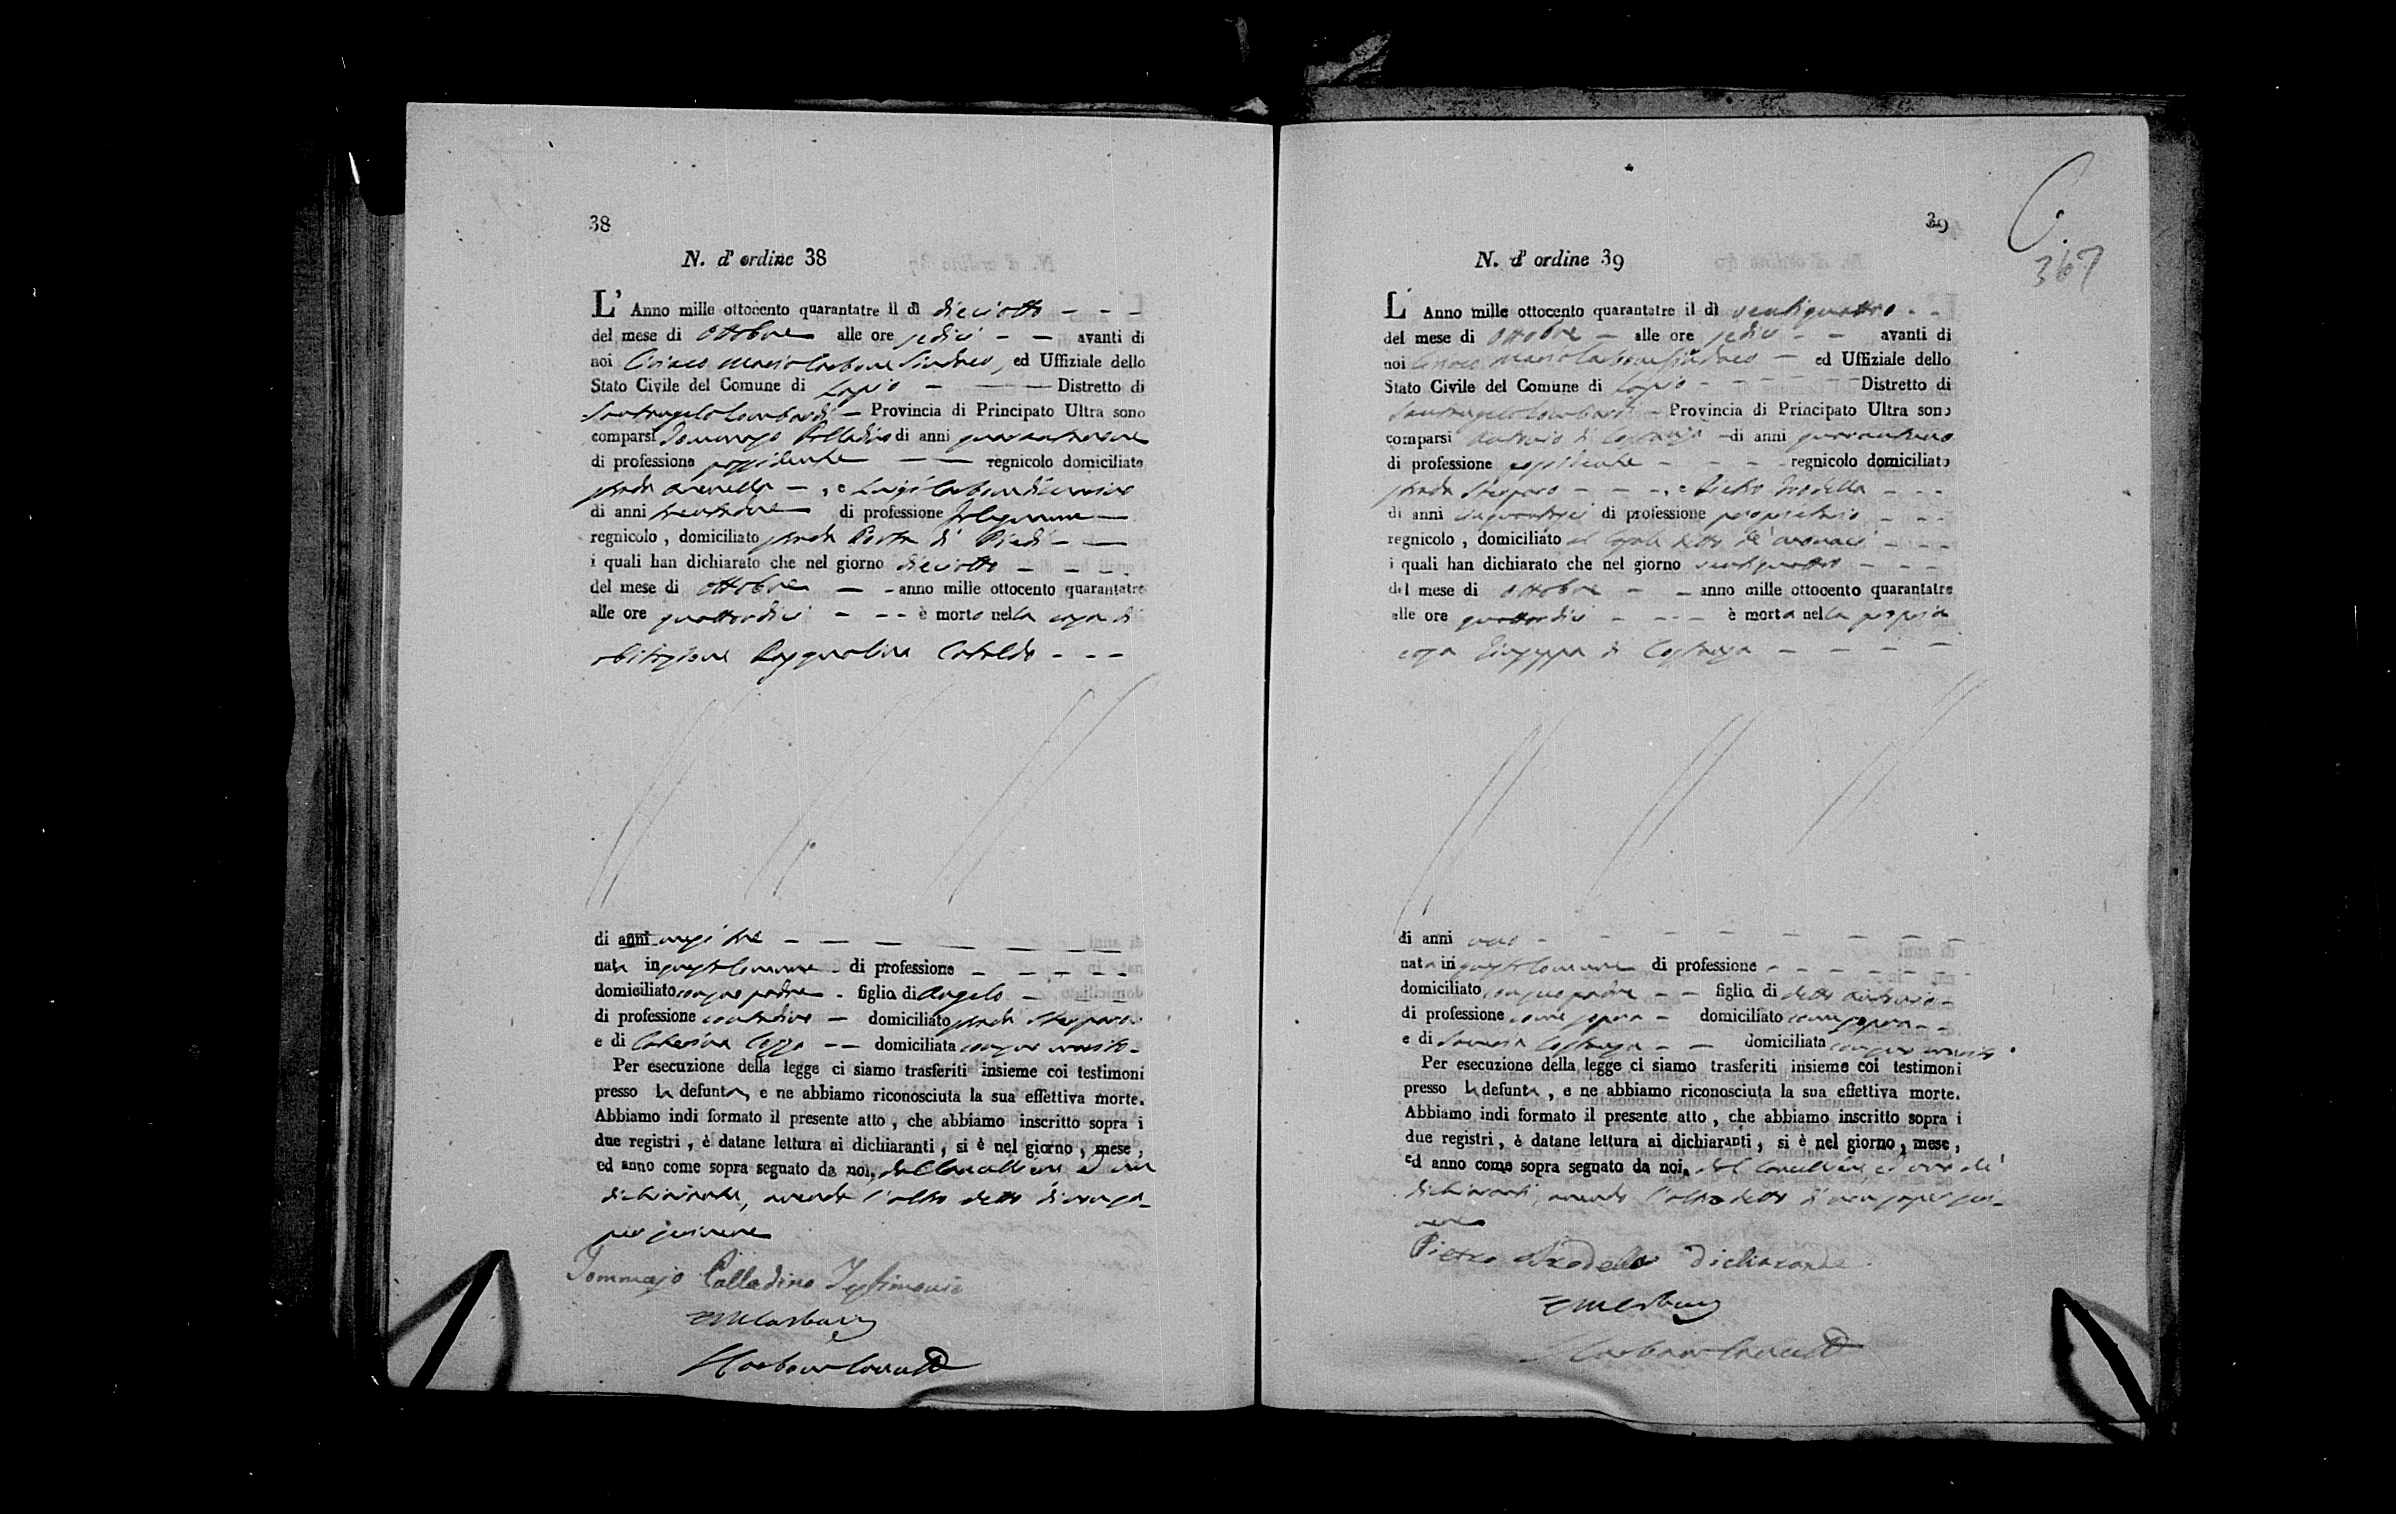 38
N. d' ordine 38
L' Anno mille ottocento quarantatre il dì dieciotto
del mese di ottobre alle ore sedici avanti di
noi Ciriaco Maria Carbone Sindaco, ed Uffiziale dello
Stato Civile del Comune di Lapio Distretto di
Santangelo Lombardi Provincia di Principato Ultra sono
comparsi Tommaso Palladino di anni
di professione possidente regnicolo domiciliato
strada, e Luigi Carbone
di anni di professione falegname
regnicolo, domiciliato strada Porta di Piedi
i quali han dichiarato che nel giorno dieciotto
del mese di ottobre anno mille ottocento quarantatre
alle ore quattordici è morta nella casa di
abitazione Pasqualina Cataldo
di anni mesi tre
nata in questo Comune di professione
domiciliato con suo padre figlia di Angelo
di professione contadino domiciliato strada
e di Caterina domiciliata con suo marito
Per esecuzione della legge ci siamo trasferiti insieme coi testimoni
presso la defunta, e ne abbiamo riconosciuta la sua effettiva morte.
Abbiamo indi formato il presente atto, che abbiamo inscritto sopra i
due registri, è datane lettura ai dichiaranti, si è nel giorno, mese,
ed anno come sopra segnato da noi, dal Cancelliere ed un
dichiarante, avendo l'altro detto di non sa-
per scrivere
Tommaso Palladino Testimonio
CMCarbone
39
C.
367
N. d' ordine 39
L' Anno mille ottocento quarantatre il dì ventiquattro
del mese di ottobre alle ore sedici avanti di
noi Ciriaco Maria Carbone Sindaco ed Uffiziale dello
Stato Civile del Comune di Lapio Distretto di
Santangelo Lombardi Provincia di Principato Ultra sono
comparsi Antonio di di anni
di professione possidente regnicolo domiciliato
strada e Pietro
di anni di professione proprietario
regnicolo, domiciliato
i quali han dichiarato che nel giorno ventiquattro
del mese di ottobre anno mille ottocento quarantatre
alle ore quattordici è morta nella propria
casa Giuseppa di
di anni uno
nata in questo Comune di professione
domiciliato con suo padre figlia di detto Antonio
di professione come sopra domiciliato come sopra
e di domiciliata con suo marito
Per esecuzione della legge ci siamo trasferiti insieme coi testimoni
presso la defunta, e ne abbiamo riconosciuta la sua effettiva morte.
Abbiamo indi formato il presente atto, che abbiamo inscritto sopra i
due registri, è datane lettura ai dichiaranti, si è nel giorno, mese,
ed anno come sopra segnato da noi, dal Cancelliere ed uno de'
dichiaranti, avendo l'altro detto di non saper scri-
vere
Pietro dichiarante
CMCarbone